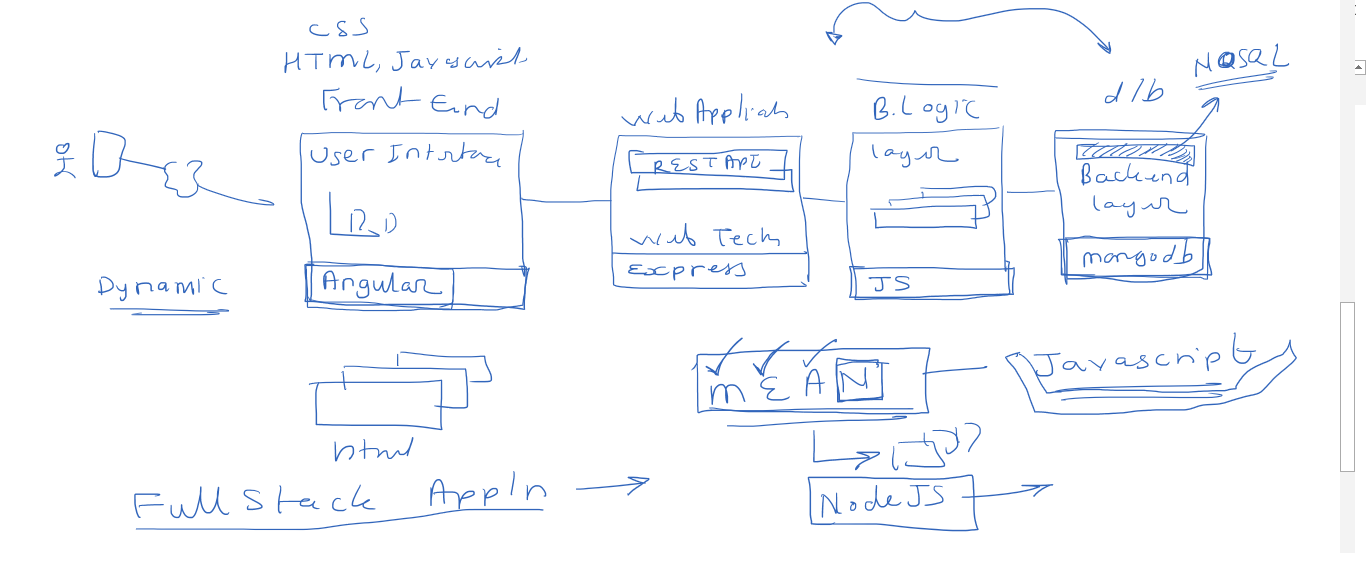 CSS
HTML, Javascript
Front End
User Interface
Angular
Dynamic
html
Full Stack Appln
Web Applicatn
REST API
Web Tech
Express
B.Logic
layer
JS
d/b
NOSQL
Backend
layer
mongodb
MEAN
Javascript
NodeJS